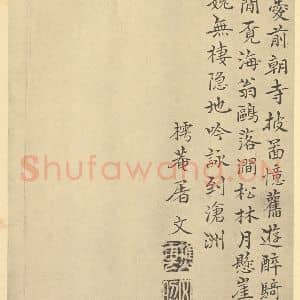 愛前朝寺披茵憶舊遊醉騎
閒覓海翁鷗落澗松林月懸崖
娩無棲隱地吟詠到滄洲
樗菴居文
Shufawang.cn